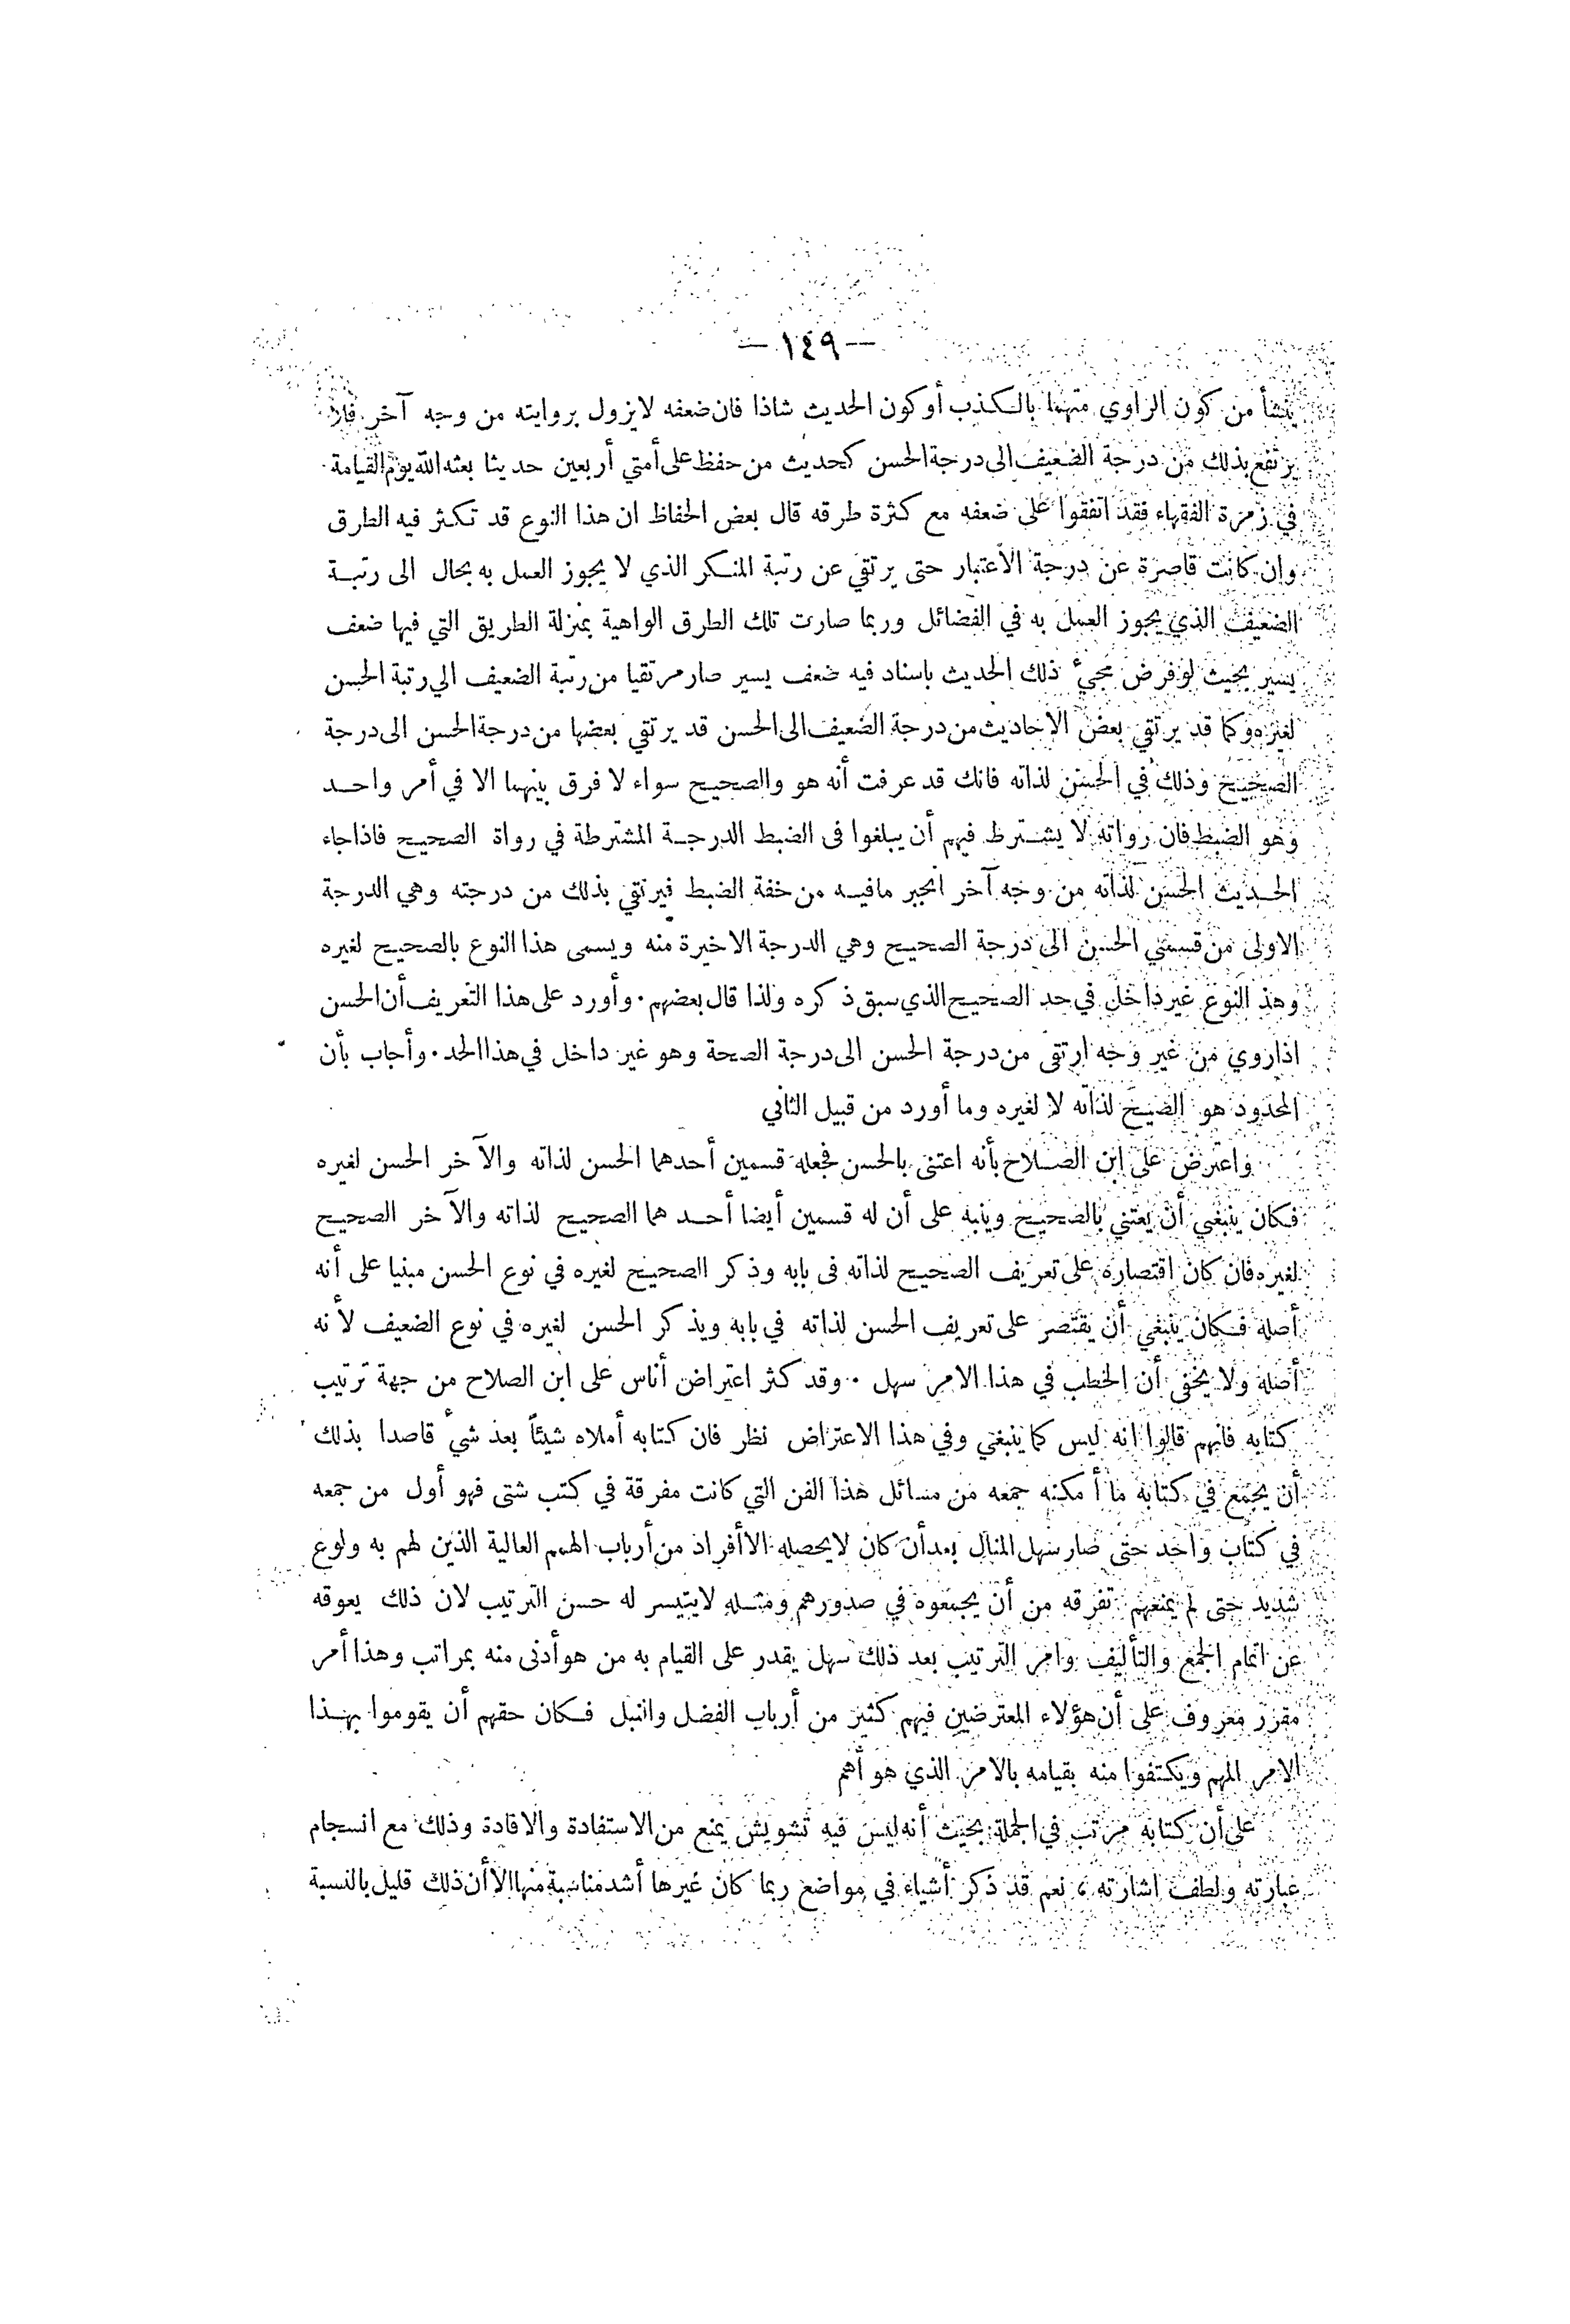 — ١٤٩ —
ينشأ من كون الراوي متهما بالكذب أو كون الحديث شاذا فان ضعفه لا يزول بروايته من وجه آخر فلا
يرتفع بذلك من درجة الضعيف الى درجة الحسن كحديث من حفظ على أمتي أربعين حديثا بعثه الله يوم القيامة
في زمرة الفقهاء فقد اتفقوا على ضعفه مع كثرة طرقه قال بعض الحفاظ ان هذا النوع قد تكثر فيه الطرق
وان كانت قاصرة عن درجة الاعتبار حتى يرتقي عن رتبة المنكر الذي لا يجوز العمل به بحال الى رتبة
الضعيف الذي يجوز العمل به في الفضائل وربما صارت تلك الطرق الواهية بمنزلة الطريق التي فيها ضعف
يسير بحيث لو فرض مجيء ذلك الحديث باسناد فيه ضعف يسير صار مرتقيا من رتبة الضعيف الي رتبة الحسن
لغيره وكما قد يرتقي بعض الاحاديث من درجة الضعيف الى الحسن قد يرتقي بعضها من درجة الحسن الى درجة
الصحيح وذلك في الحسن لذاته فانك قد عرفت أنه هو والصحيح سواء لا فرق بينهما الا في أمر واحد
وهو الضبط فان رواته لا يشترط فيهم أن يبلغوا فى الضبط الدرجة المشترطة في رواة الصحيح فاذا جاء
الحديث الحسن لذاته من وجه آخر انجبر ما فيه من خفة الضبط فيرتقي بذلك من درجته وهي الدرجة
الاولى من قسمي الحسن الى درجة الصحيح وهي الدرجة الاخيرة منه ويسمى هذا النوع بالصحيح لغيره
وهذ النوع غير داخل في حد الصحيح الذي سبق ذكره ولذا قال بعضهم . وأورد على هذا التعريف أن الحسن
اذا روي من غير وجه ارتقى من درجة الحسن الى درجة الصحة وهو غير داخل في هذا الحد . وأجاب بأن
المحدود هو الصيح لذاته لا لغيره وما أورد من قبيل الثاني
واعترض على ابن الصلاح بأنه اعتنى بالحسن فجعله قسمين أحدهما الحسن لذاته والآخر الحسن لغيره
فكان ينبغي أن يعتني بالصحيح وينبه على أن له قسمين أيضا أحدهما الصحيح لذاته والآخر الصحيح
لغيره فان كان اقتصاره على تعريف الصحيح لذاته فى بابه وذكر الصحيح لغيره في نوع الحسن مبنيا على أنه
أصله فكان ينبغي أن يقتصر على تعريف الحسن لذاته في بابه ويذكر الحسن لغيره في نوع الضعيف لأنه
أصله ولا يخفى أن الخطب في هذا الامر سهل . وقد كثر اعتراض أناس على ابن الصلاح من جهة ترتيب
كتابه فانهم قالوا انه ليس كما ينبغي وفي هذا الاعتراض نظر فان كتابه أملاه شيئاً بعد شيء قاصدا بذلك
أن يجمع في كتابه ما أمكنه جمعه من مسائل هذا الفن التي كانت مفرقة في كتب شتى فهو أول من جمعه
في كتاب واحد حتى صار سهل المنال بعد أن كان لا يحصله الا أفراد من أرباب الهمم العالية الذين لهم به ولوع
شديد حتى لم يمنعهم تفرقه من أن يجمعوه في صدورهم ومثله لا يتيسر له حسن الترتيب لان ذلك يعوقه
عن اتمام الجمع والتأليف وامر الترتيب بعد ذلك سهل يقدر على القيام به من هو أدنى منه بمراتب وهذا أمر
مقرر معروف على أن هؤلاء المعترضين فيهم كثير من أرباب الفضل والنبل فكان حقهم أن يقوموا بهذا
الامر المهم ويكتفوا منه بقيامه بالامر الذي هو أهم
على أن كتابه مرتب في الجملة بحيث أنه ليس فيه تشويش يمنع من الاستفادة والافادة وذلك مع انسجام
عبارته ولطف اشارته ، نعم قد ذكر أشياء في مواضع ربما كان غيرها أشد مناسبة منها الا أن ذلك قليل بالنسبة